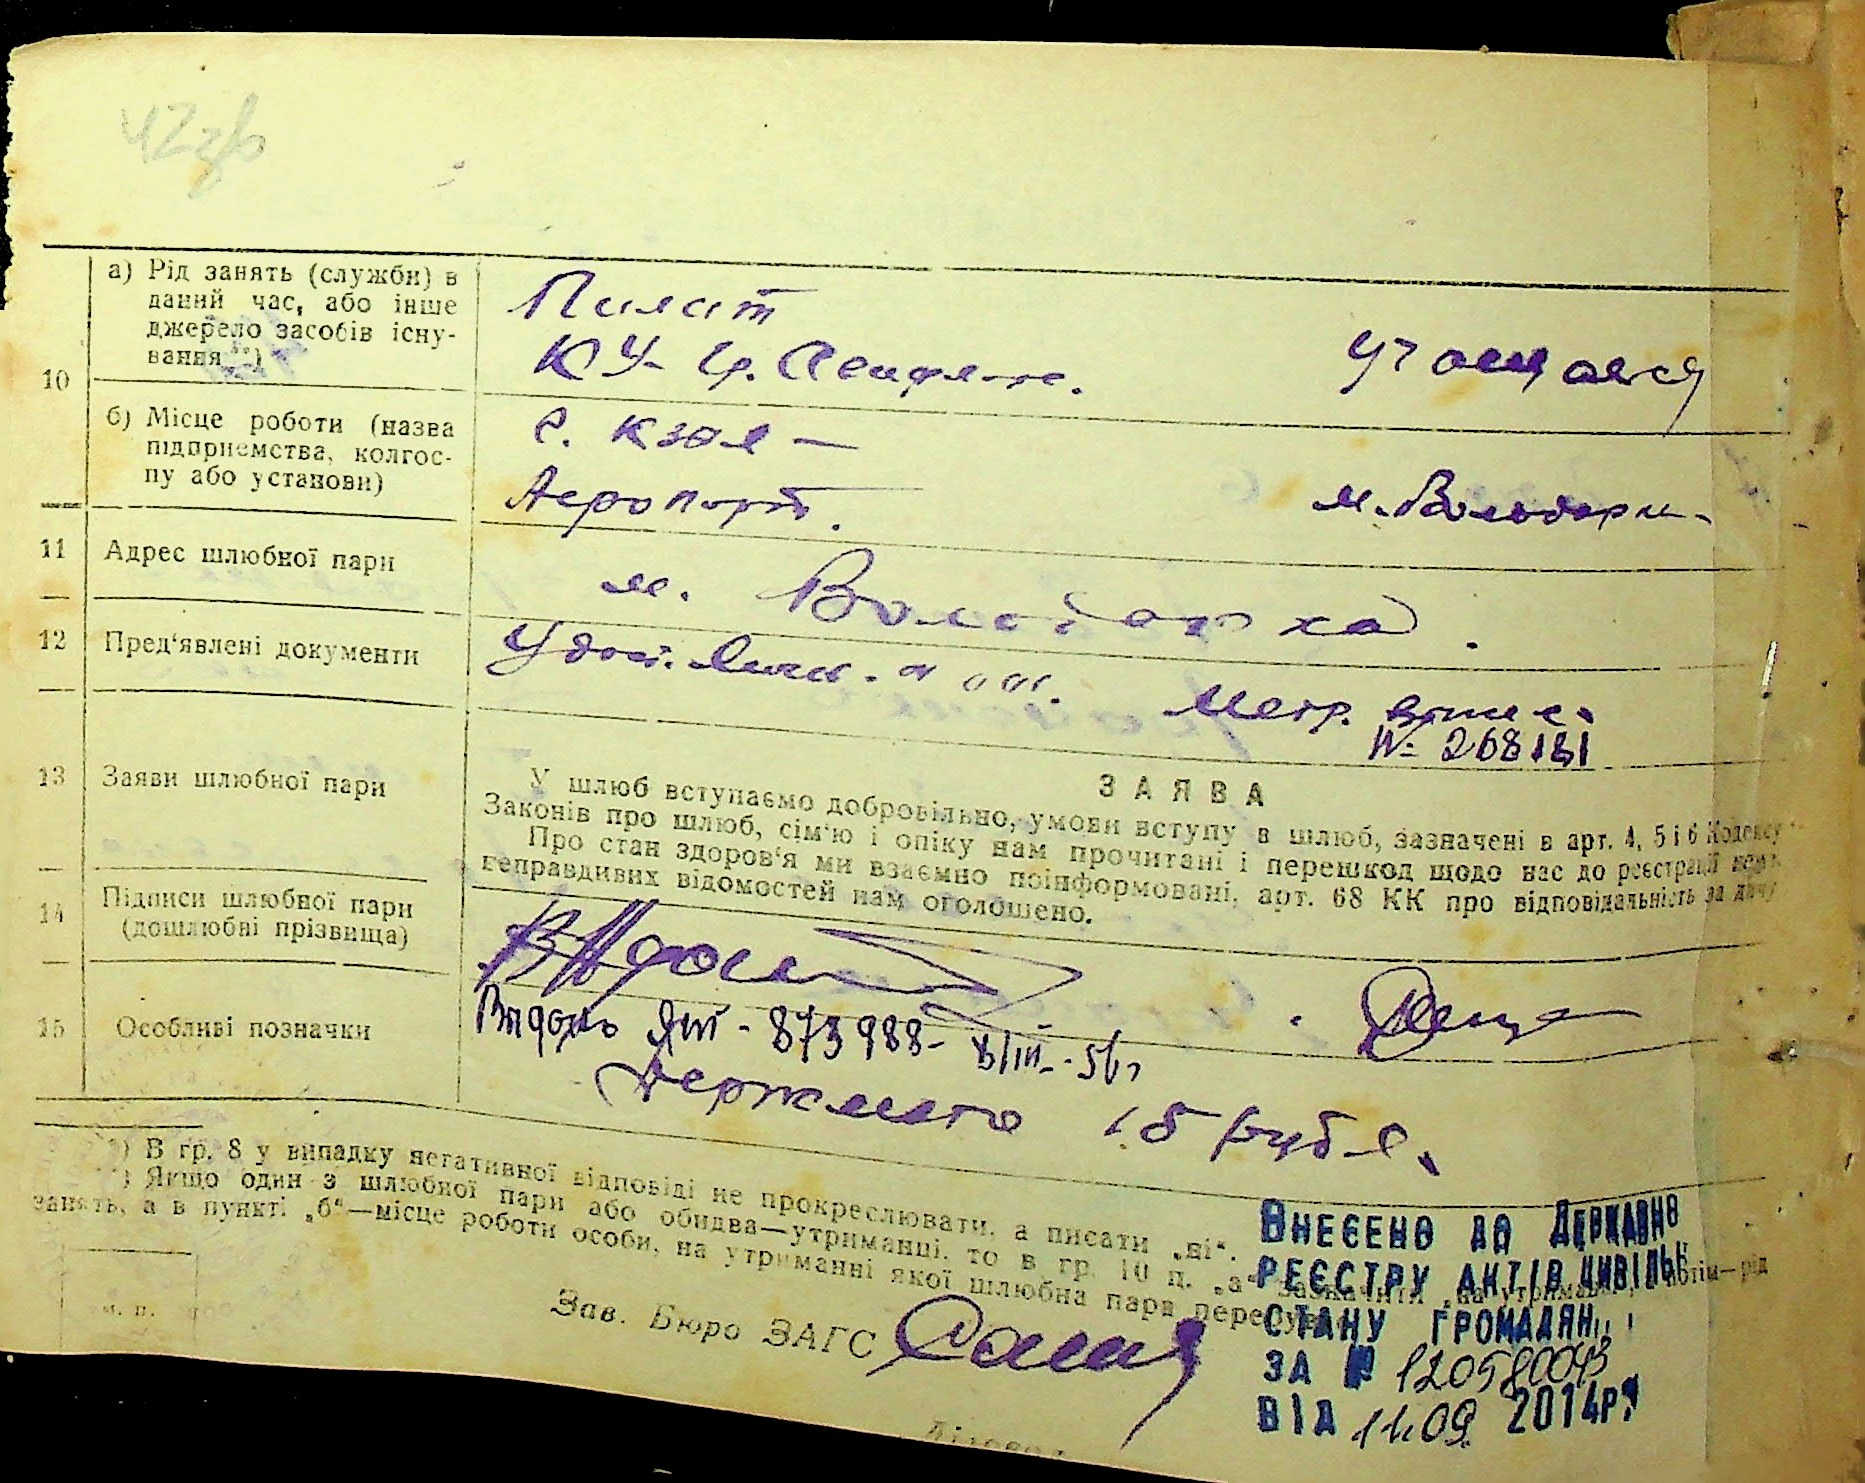 10
а) Рід занять (служби) в
даний час, або інше
джерело засобів існу-
вання **)
Пилот
Учащаяся
б) Місце роботи (назва
підприємства, колгос-
пу або установи)
Аеропорт.
м. Володарк.
11 Адрес шлюбної пари
м. Володарка.
12 Пред'явлені документи
Удост. личн.
Метр. випис.
№ 268181
13 Заяви шлюбної пари
ЗАЯВА
У шлюб вступаємо добровільно, умови вступу в шлюб, зазначені в арт. 4, 5 і 6 Кодексу
Законів про шлюб, сім'ю і опіку нам прочитані і перешкод щодо нас до реєстрації
Про стан здоров'я ми взаємно поінформовані, арт. 68 КК про відповідальність за дачу
неправдивих відомостей нам оголошено.
14 Підписи шлюбної пари
(дошлюбні прізвища)
15 Особливі позначки
873988-
Держмито 15 рубл.
*) В гр. 8 у випадку негативної відповіді не прокреслювати, а писати „ні“.
**) Якщо один з шлюбної пари або обидва—утриманці, то в гр. 10 п. „а“ зазначити „на утриманні“, потім—рід
занять, а в пункті „б“—місце роботи особи, на утриманні якої шлюбна пара
м. п.
Зав. Бюро ЗАГС
ВНЕСЕНО ДО ДЕРЖАВНО
РЕЄСТРУ АКТІВ ЦИВІЛЬН
СТАНУ ГРОМАДЯН
ЗА № 120580093
ВІД 11.09. 2014р.